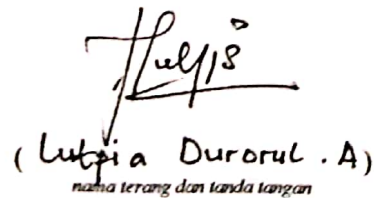 (Lutpia Durorul . A)
nama terang dan tanda tangan